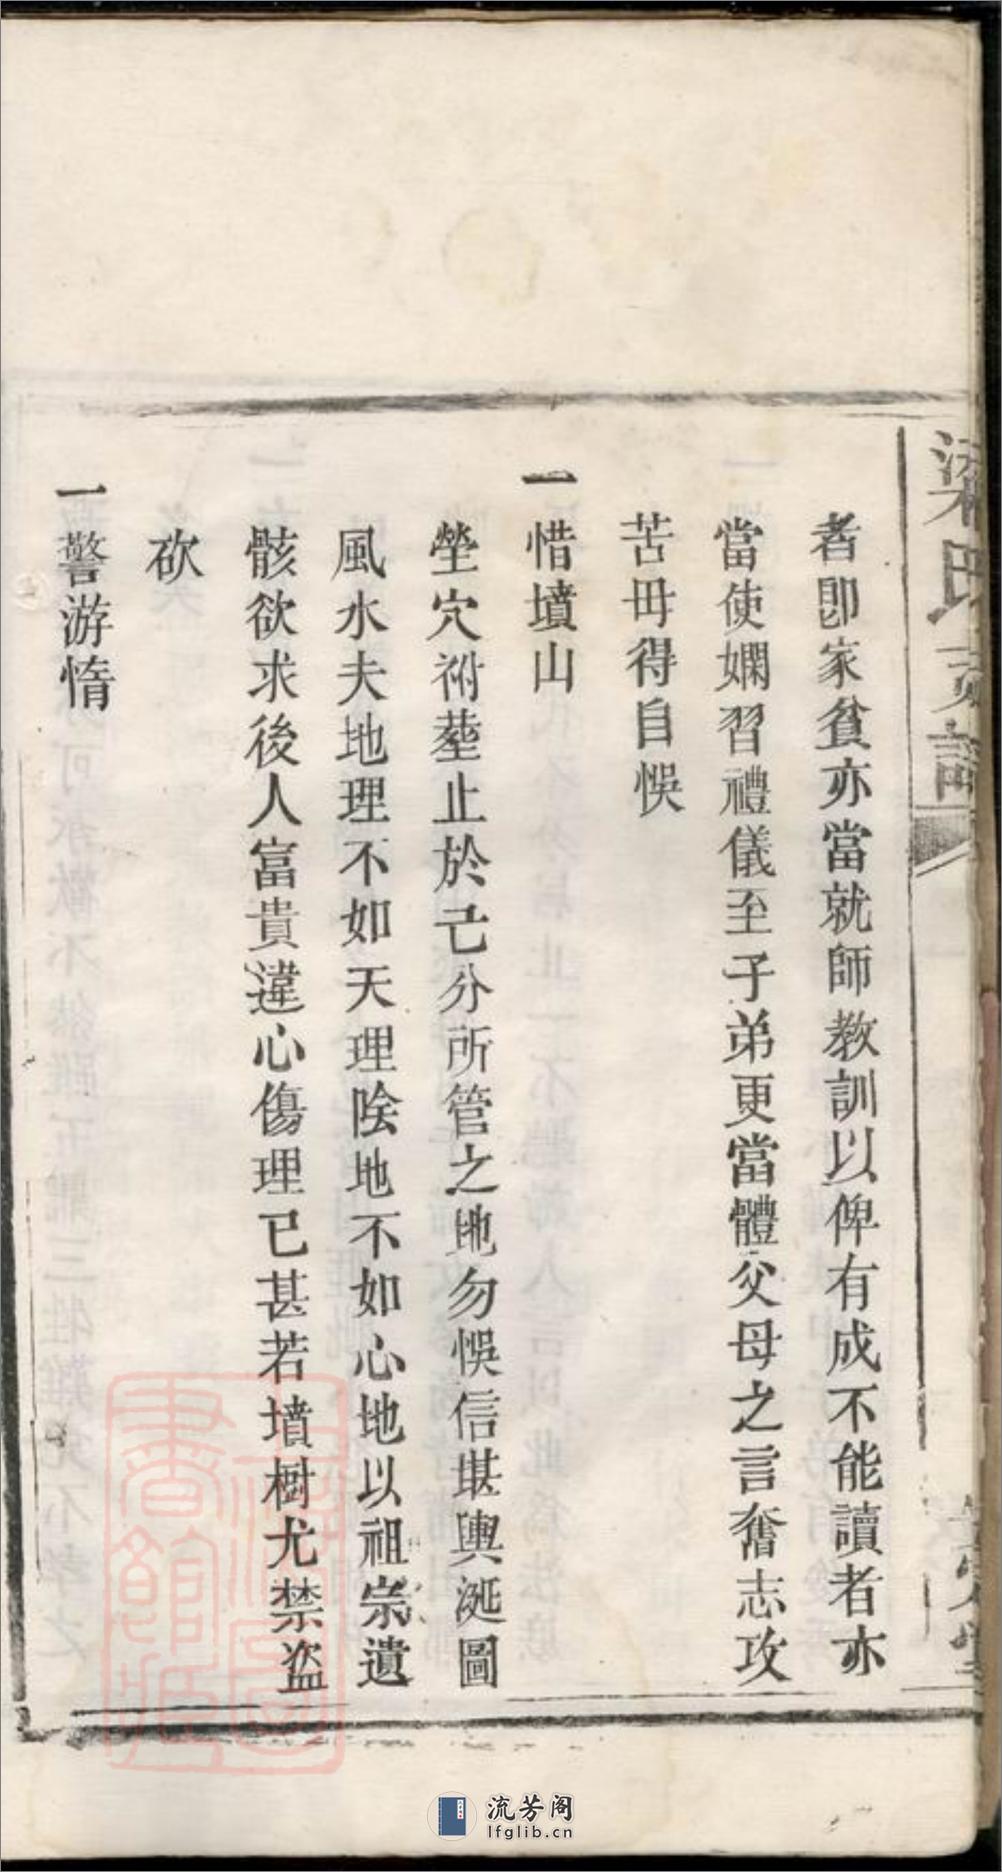 梁氏支譜
者卽家貧亦當就師教訓以俾有成不能讀者亦
當使嫻習禮儀至子弟更當體父母之言奮志攻
苦毋得自悞
一惜墳山
塋穴祔塟止於己分所管之地勿悞信堪輿涎圖
風水夫地理不如天理陰地不如心地以祖宗遺
骸欲求後人富貴違心傷理已甚若墳樹尤禁盜
砍
一警游惰
流芳阁
lfglib.cn